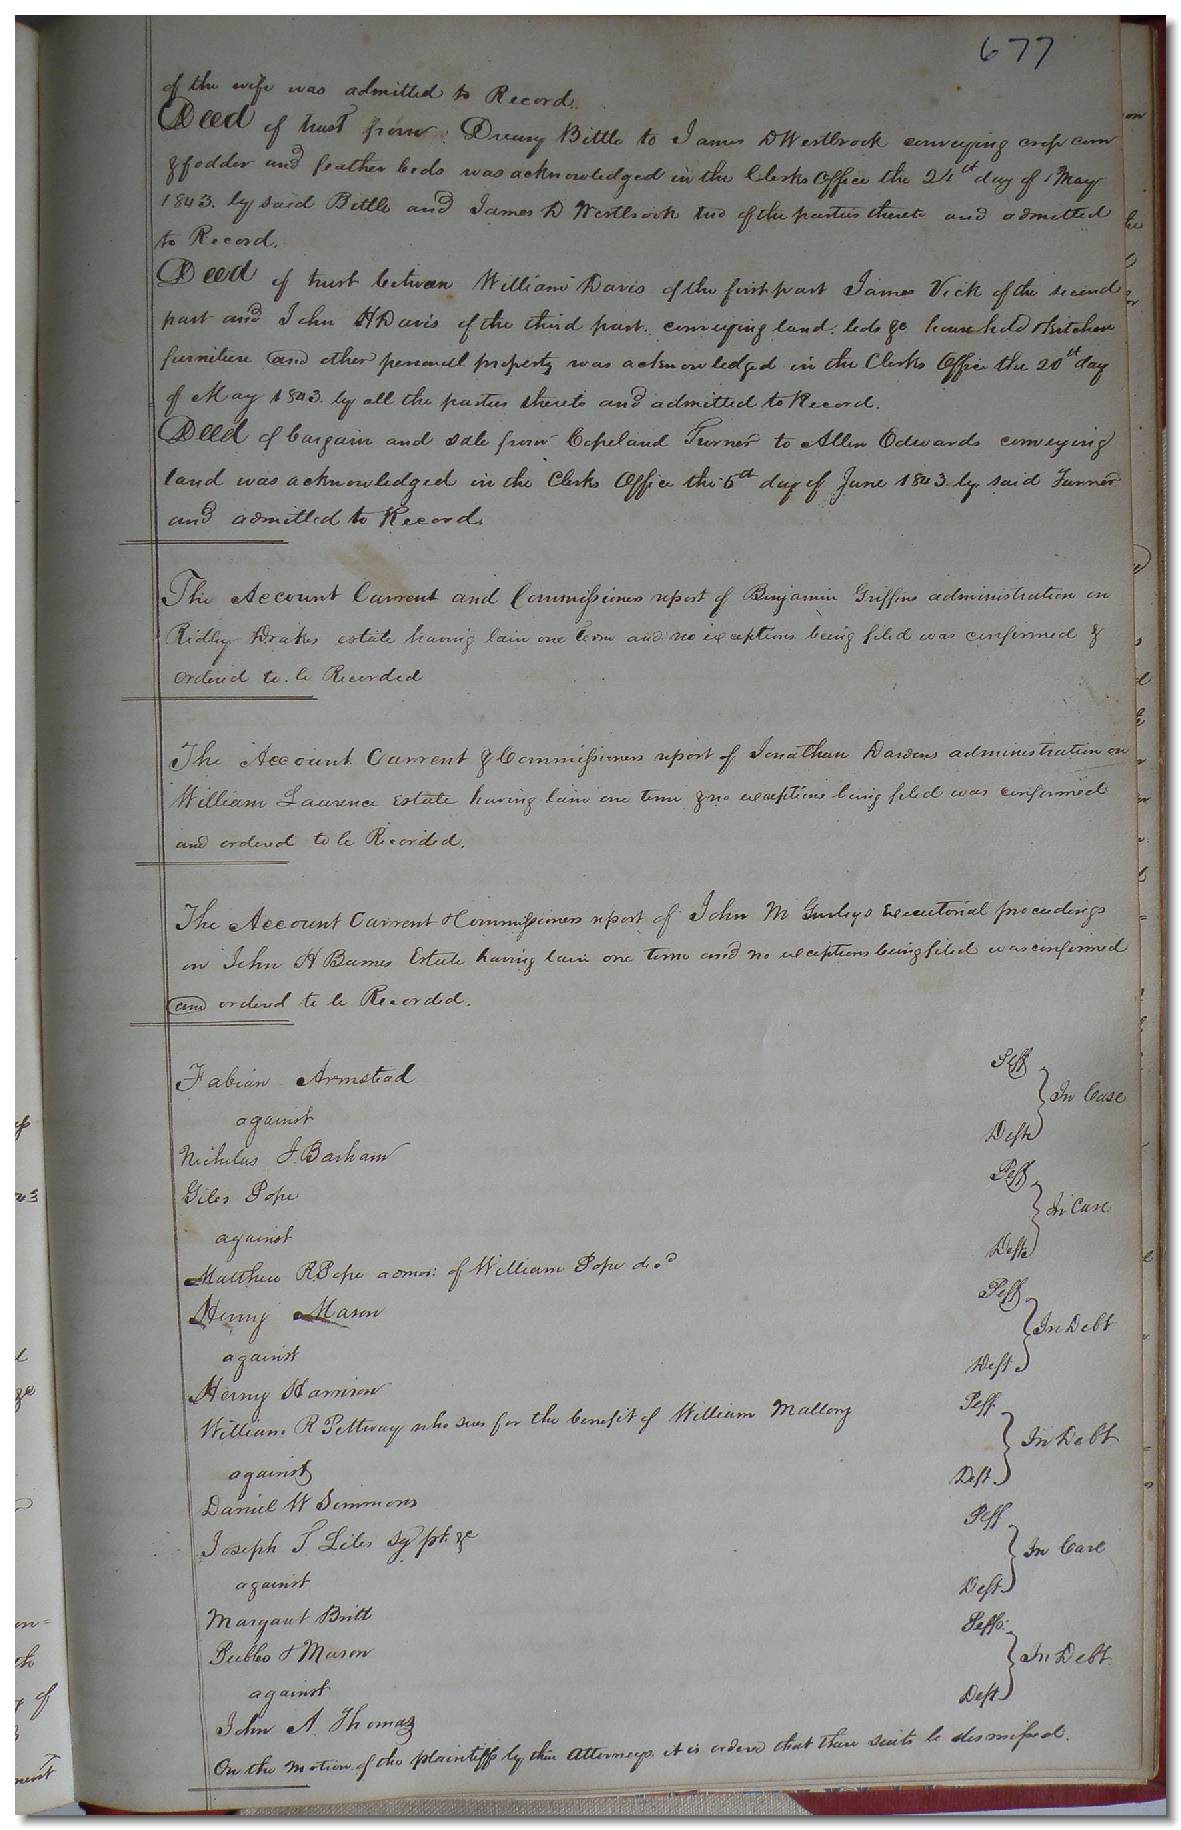 677
of the wife was admitted to Record.
Deed of trust from Drewry Bittle to James D Westbrook conveying crop corn
& fodder and feather beds was acknowledged in the Clerks Office the 24th day of May
1843. by said Bittle and James D Westbrook two of the parties thereto and admitted
to Record.
Deed of trust between William Davis of the first part James Vick of the second
part and John H Davis of the third part. conveying land. beds &c household & kitchen
furniture and other personal property was acknowledged in the Clerks Office the 20th day
of May 1843. by all the parties thereto and admitted to Record.
Deed of bargain and sale from Copeland Turner to Allen Edwards conveying
land was acknowledged in the Clerks Office the 6th day of June 1843 by said Turner
and admitted to Record.
The Account Current and Commissioners report of Benjamin Griffins administration on
Ridley Drakes estate having lain one term and no exceptions being filed was confirmed &
ordered to be Recorded
The Account Current & Commissioners report of Jonathan Dardens administration on
William Laurence Estate having lain one term & no exceptions being filed was confirmed
and ordered to be Recorded.
The Account Current & Commissioners report of John M Gurleys Executorial proceedings
on John H Barnes Estate having lain one term and no exceptions being filed was confirmed
and ordered to be Recorded.
Fabian Armstead Plff
against In Case
Nicholas J. Barham Deft
Giles Pope Plff
against In Case
Matthew R Pope admor: of William Pope decd Deft
Henry Mason Plff
against In Debt
Henry Harrison Deft
William R Pettway who sues for the benefit of William Mallory Plff
against In Debt
Daniel W Simmons Deft
Joseph T Liles &c Plff
against In Case
Margaret Britt Deft
Peebles & Mason Plffs.
against In Debt
John A Thomas Deft
On the motion of the plaintiffs by their Attorneys it is ordered that their suits be dismissed.